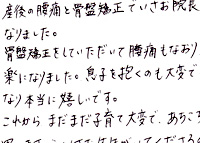 産後の腰痛と骨盤矯正でいさお院長
なりました。
骨盤矯正をしていただいて腰痛もなおり
楽になりました。息子を抱くのも大変で
なり本当に嬉しいです。
これから まだまだ子育て大変で、あちこち